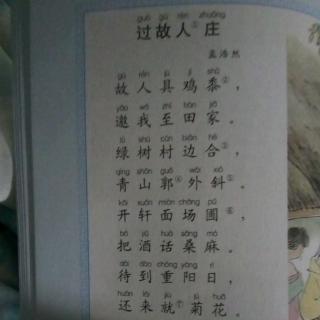 guò gù rén zhuāng
过故人①庄
孟浩然
gù rén jù jī shǔ
故人具鸡黍②，
yāo wǒ zhì tián jiā
邀我至田家。
lǜ shù cūn biān hé
绿树村边合③，
qīng shān guō wài xiá
青山郭④外斜⑤。
kāi xuān miàn chǎng pǔ
开轩面场圃⑥，
bǎ jiǔ huà sāng má
把酒话桑麻。
dài dào chóng yáng rì
待到重阳日，
huán lái jiù jú huā
还来就⑦菊花。